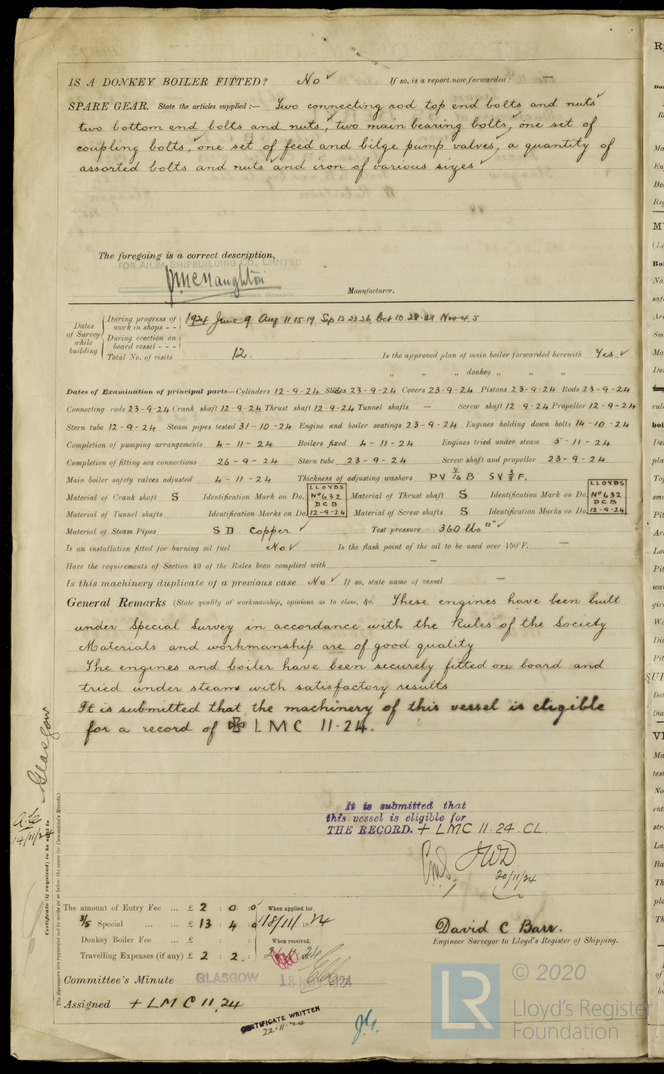 IS A DONKEY BOILER FITTED? No ✓ If so, is a report now forwarded? —
SPARE GEAR. State the articles supplied:— Two connecting rod top end bolts and nuts ✓
two bottom end bolts and nuts, ✓ two main bearing bolts, ✓ one set of
coupling bolts, ✓ one set of feed and bilge pump valves, ✓ a quantity of
assorted bolts and nuts and iron of various sizes ✓
The foregoing is a correct description,
FOR AILSA SHIPBUILDING CO., LIMITED
J McNaughton
Manufacturer.
Dates of Survey while building
During progress of work in shops - - 1924 June 9 Aug 11. 15. 19 Sp 12 23 26 Oct 10 28. 29 Nov 4. 5
During erection on board vessel - - -
Total No. of visits 12. Is the approved plan of main boiler forwarded herewith Yes. ✓
" " " donkey " " "
Dates of Examination of principal parts—Cylinders 12-9-24 Slides 23-9-24 Covers 23-9-24 Pistons 23-9-24 Rods 23-9-24
Connecting rods 23-9-24 Crank shaft 12-9-24 Thrust shaft 12-9-24 Tunnel shafts — Screw shaft 12-9-24 Propeller 12-9-24
Stern tube 12-9-24 Steam pipes tested 31-10-24 Engine and boiler seatings 23-9-24 Engines holding down bolts 14-10-24
Completion of pumping arrangements 4-11-24 Boilers fixed 4-11-24 Engines tried under steam 5-11-24
Completion of fitting sea connections 26-9-24 Stern tube 23-9-24 Screw shaft and propeller 23-9-24
Main boiler safety valves adjusted 4-11-24 Thickness of adjusting washers PV 4/16 B SV 3/8 F.
Material of Crank shaft S Identification Mark on Do. LLOYDS Nº 632 DCB 12-9-24 Material of Thrust shaft S Identification Mark on Do. LLOYDS Nº 632 DCB 12-9-24
Material of Tunnel shafts Identification Marks on Do. Material of Screw shafts S Identification Marks on Do.
Material of Steam Pipes S D Copper ✓ Test pressure 360 lbs □" ✓
Is an installation fitted for burning oil fuel No ✓ Is the flash point of the oil to be used over 150°F. —
Have the requirements of Section 49 of the Rules been complied with —
Is this machinery duplicate of a previous case No ✓ If so, state name of vessel —
General Remarks (State quality of workmanship, opinions as to class, &c. These engines have been built
under Special Survey in accordance with the Rules of the Society
Materials and workmanship are of good quality
The engines and boiler have been securely fitted on board and
tried under steam with satisfactory results
It is submitted that the machinery of this vessel is eligible
for a record of ✠ LMC 11-24.
It is submitted that
this vessel is eligible for
THE RECORD. + LMC 11.24. CL.
JWD
20/11/24
Glasgow
14/11/24
Certificate (if required) to be sent to
The Surveyors are requested not to write on or below the space for Committee's Minute.
The amount of Entry Fee ... £ 2 : 0 : 0 When applied for,
3/5 Special ... ... £ 13 : 4 : 0 18/11/1924
Donkey Boiler Fee ... £ : : When received,
Travelling Expenses (if any) £ 2 : 2 :
David C Barr.
Engineer Surveyor to Lloyd's Register of Shipping.
Committee's Minute GLASGOW 18 NOV 1924
Assigned + LMC 11.24
CERTIFICATE WRITTEN
22-11-24
LR © 2020
Lloyd's Register
Foundation